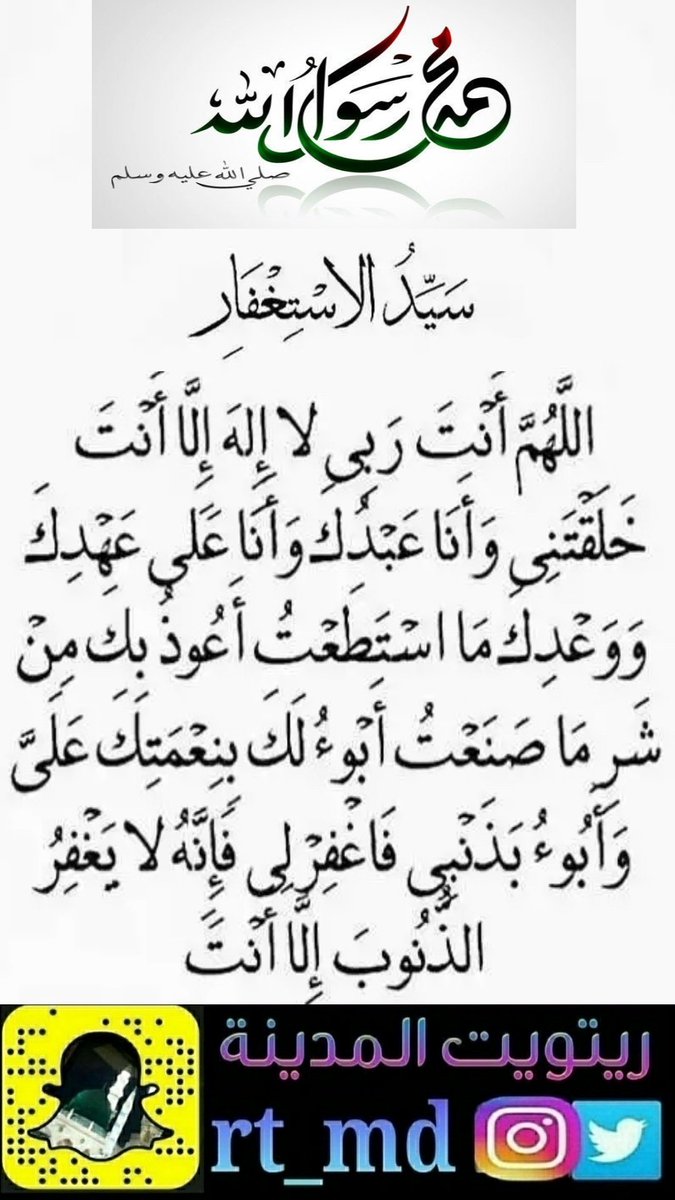 محمد رسول الله
صلي الله عليه وسلم
سَيِّدُ الاسْتِغْفَارِ
اللَّهُمَّ أَنْتَ رَبِي لا إِلهَ إِلَّا أَنْتَ
خَلَقْتَنِي وَأَنَا عَبْدُكَ وَأَنَا عَلَى عَهْدِكَ
وَوَعْدِكَ مَا اسْتَطَعْتُ أَعُوذُ بِكَ مِنْ
شَرِ مَا صَنَعْتُ أَبُوءُ لَكَ بِنِعْمَتِكَ عَلَىَّ
وَأَبُوءُ بَذَنْبِي فَاغْفِرْلِي فَإِنَّهُ لا يَغْفِرُ
الذُّنُوبَ إِلَّا أَنْتَ
ريتويت المدينة
rt_md